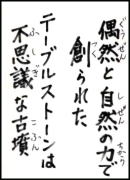 ぐうぜん しぜん ちから
偶然と自然の力で
つく
創られた
テーブルストーンは
ふしぎ こふん
不思議な古墳